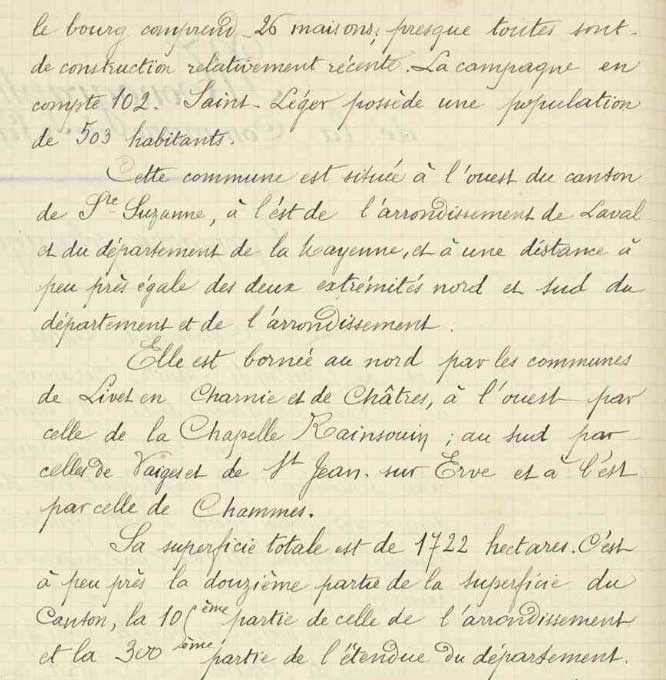 le bourg comprend 26 maisons; presque toutes sont
de construction relativement récente. La campagne en
compte 102. Saint-Léger possède une population
de 503 habitants.
Cette commune est située à l'ouest du canton
de Ste Suzanne, à l'est de l'arrondissement de Laval
et du département de la Mayenne, et à une distance à
peu près égale des deux extrémités nord et sud du
département et de l'arrondissement.
Elle est bornée au nord par les communes
de Livet en Charnie et de Châtres, à l'ouest par
celle de la Chapelle Rainsouin; au sud par
celles de Vaiges et de St Jean-sur Erve et à l'est
par celle de Chammes.
Sa superficie totale est de 1722 hectares. C'est
à peu près la douzième partie de la superficie du
Canton, la ème partie de celle de l'arrondissement
et la 300 ième partie de l'étendue du département.